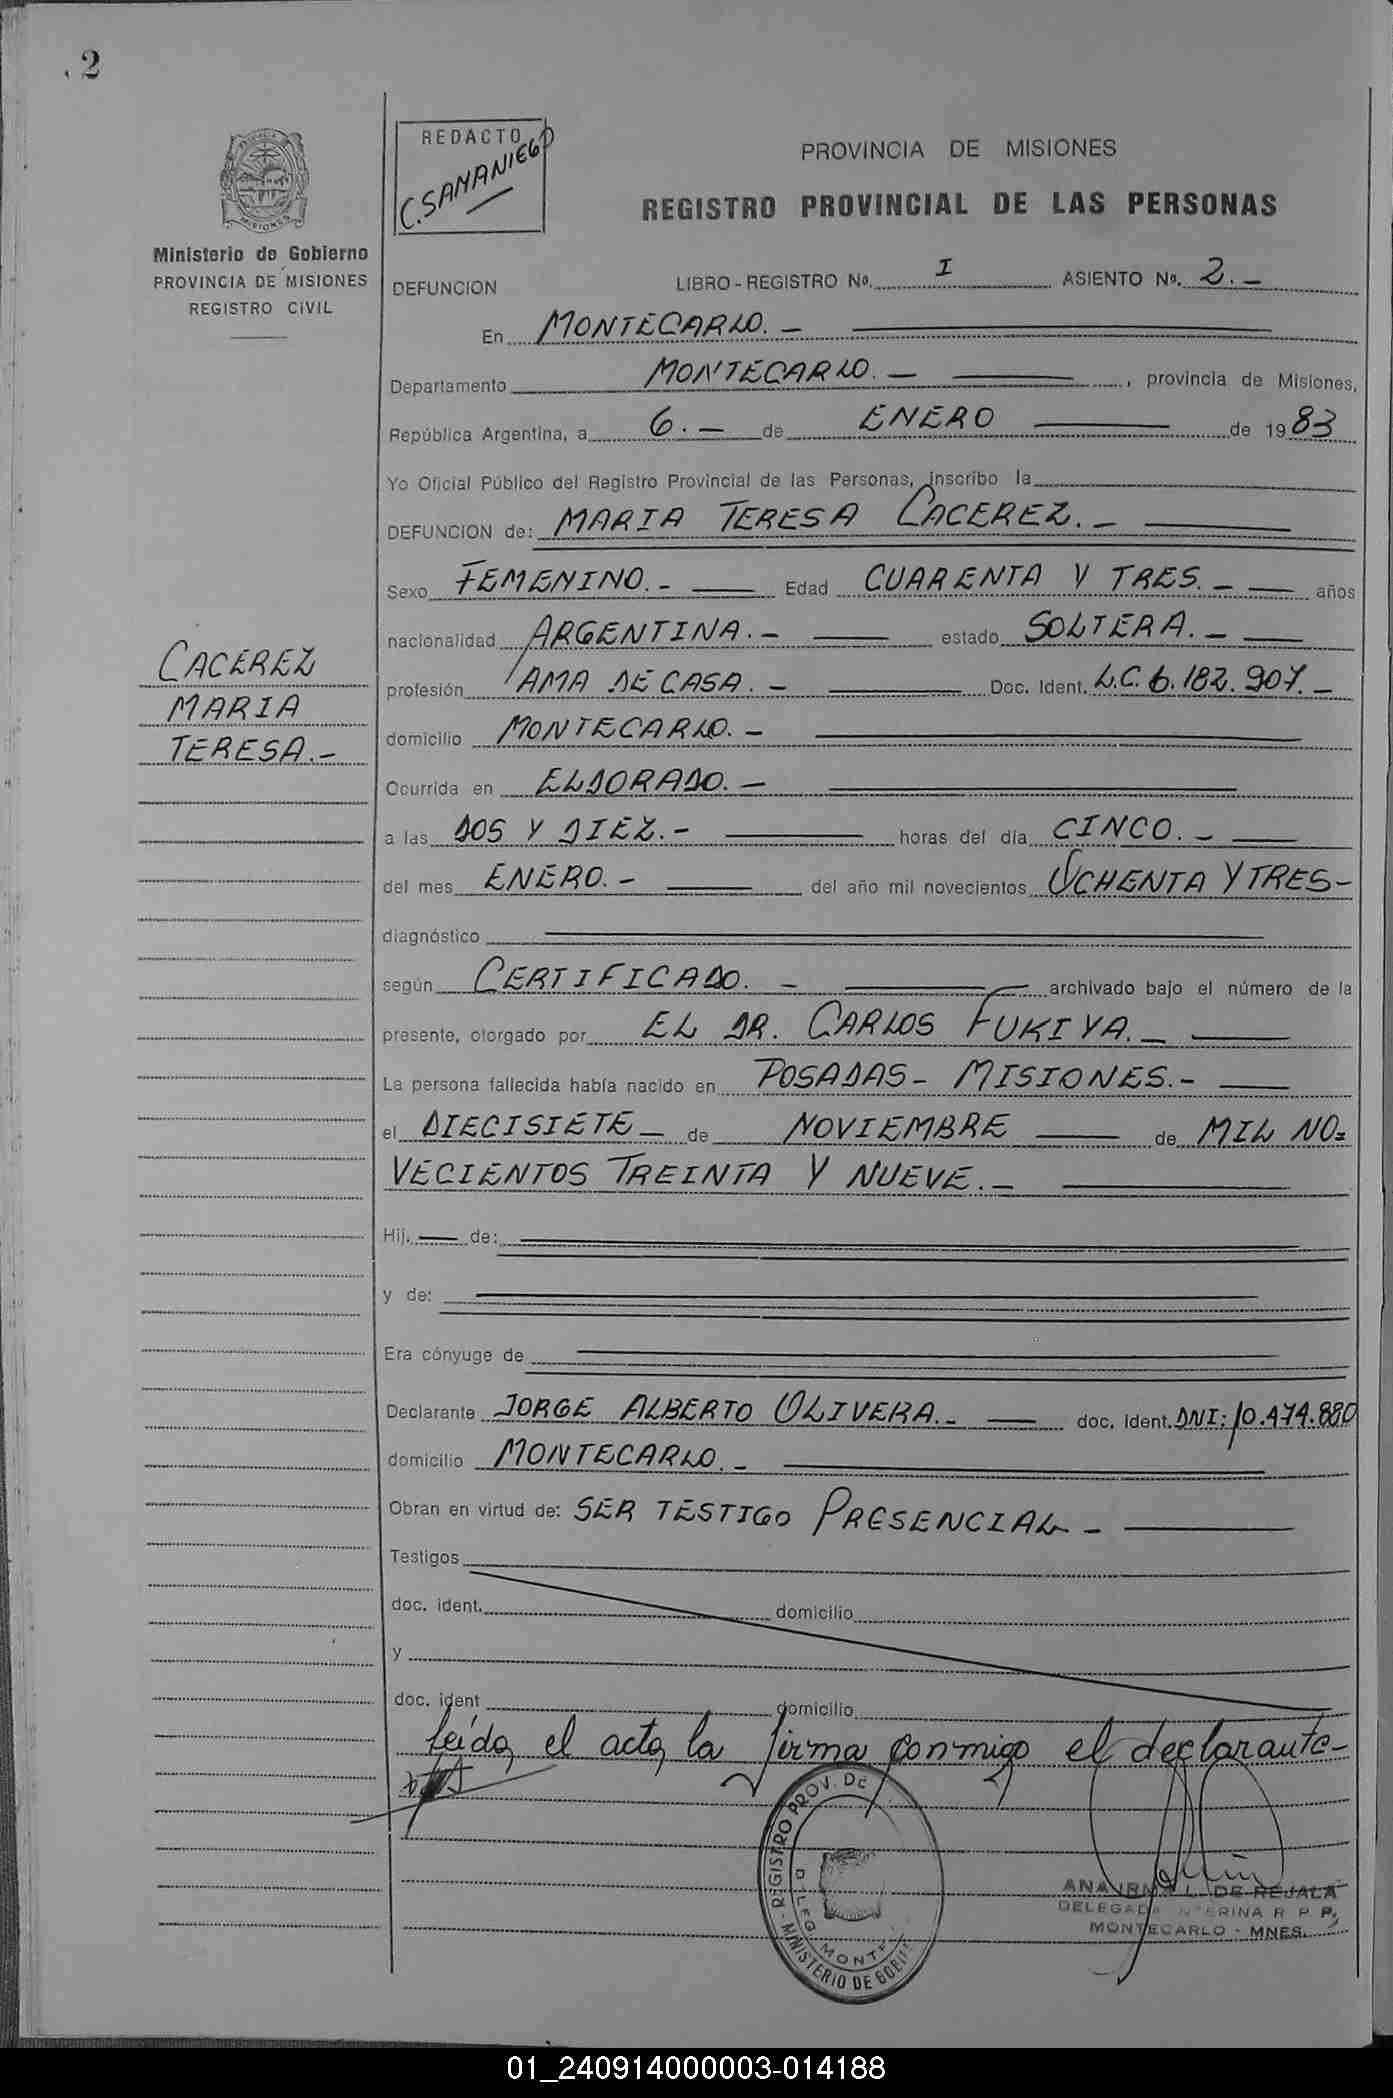 2
REDACTO
C. SAMANIEGO
PROVINCIA DE MISIONES
REGISTRO PROVINCIAL DE LAS PERSONAS
Ministerio de Gobierno
PROVINCIA DE MISIONES
REGISTRO CIVIL
DEFUNCION LIBRO - REGISTRO No. I ASIENTO No. 2.-
En MONTECARLO.-
Departamento MONTECARLO.- , provincia de Misiones,
República Argentina, a 6.- de ENERO de 1983
Yo Oficial Público del Registro Provincial de las Personas, inscribo la
DEFUNCION de: MARIA TERESA CACEREZ.-
Sexo FEMENINO.- Edad CUARENTA Y TRES.- años
nacionalidad ARGENTINA.- estado SOLTERA.-
CACEREZ
MARIA
TERESA.-
profesión AMA DE CASA.- Doc. Ident. L.C. 6.182.907.-
domicilio MONTECARLO.-
Ocurrida en ELDORADO.-
a las DOS Y DIEZ.- horas del día CINCO.-
del mes ENERO.- del año mil novecientos OCHENTA Y TRES-
diagnóstico
según CERTIFICADO.- archivado bajo el número de la
presente, otorgado por EL DR. CARLOS FUKIYA.-
La persona fallecida había nacido en POSADAS- MISIONES.-
el DIECISIETE- de NOVIEMBRE de MIL NO=
VECIENTOS TREINTA Y NUEVE.-
Hij. de:
y de:
Era cónyuge de
Declarante JORGE ALBERTO OLIVERA.- doc. Ident. DNI: 10.474.880
domicilio MONTECARLO.-
Obran en virtud de: SER TESTIGO PRESENCIAL-
Testigos
doc. ident. domicilio
y
doc. ident domicilio
Leída el acta, la firma conmigo el declarante-
REGISTRO PROV. DE
MINISTERIO DE
ANA IRMA L. DE REJALA
DELEGADA INTERINA R. P. P.
MONTECARLO - MNES.
01_240914000003-014188